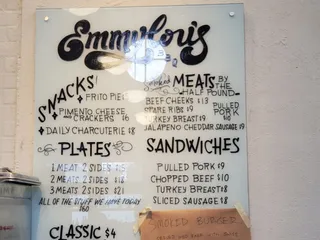 Emmylou's
BBQ
SNACKS!
FRITO PIE
PIMENTO CHEESE
AND CRACKERS $6
DAILY CHARCUTERIE $8
PLATES
1 MEAT 2 SIDES
2 MEATS 2 SIDES $18
3 MEATS 2 SIDES $21
ALL OF THE STUFF WE HAVE TODAY
$60
CLASSIC $4
Smoked MEATS BY THE
HALF POUND
BEEF CHEEKS $13
SPARE RIBS $9
TURKEY BREAST $9
JALAPENO CHEDDAR SAUSAGE $9
PULLED
PORK
$10
SANDWICHES
PULLED PORK $9
CHOPPED BEEF $10
TURKEY BREAST $8
SLICED SAUSAGE $8
SMOKED BURGER